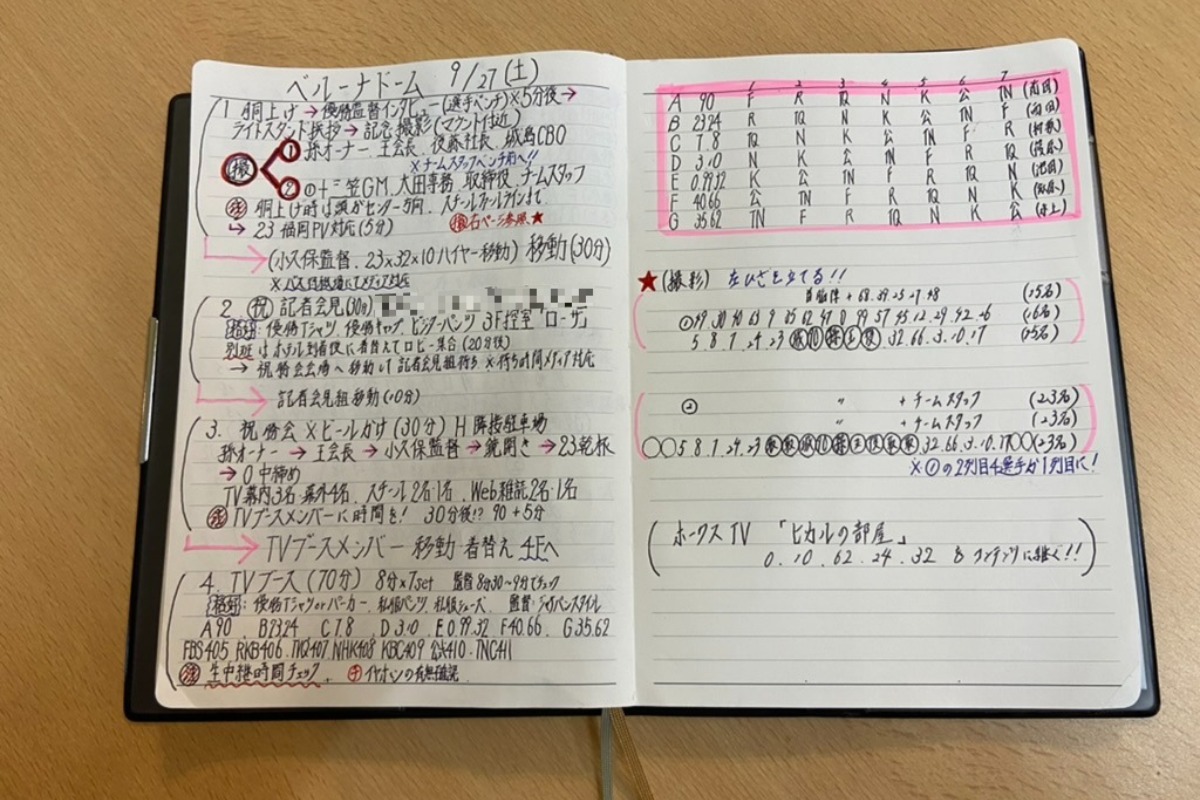 ベルーナドーム 9/27(土)
1 胴上げ→優勝監督インタビュー(選手ベンチ)×5分後→
ライトスタンド挨拶→記念撮影(マウンド付近)
撮 ① 孫オーナー、王会長、後藤社長、城島CBO
※チームスタッフベンチ前へ!!
② ①+三笠GM、太田専務、取締役、チームスタッフ
注 胴上げ時は頭がセンター方向、スチールファールラインまで
↳ 23 福岡PV対応(5分) 撮右ページ参照★
→ (小久保監督、23×32×10ハイヤー移動) 移動(30分)
2. 祝 記者会見(30分)
格好:優勝Tシャツ、優勝キャップ、ビジターパンツ 3F控室「ローザ」
別班はホテル到着後に着替えてロビー集合(20分後)
→ 祝勝会会場へ移動して記者会見組待ち ※待ち時間メディア対応
→ 記者会見組移動(10分)
3. 祝勝会×ビールかけ(30分) H隣接駐車場
孫オーナー→王会長→小久保監督→鏡開き→23乾杯
→0中締め
TV幕内3名 幕外4名、スチール2名:1名、Web雑誌2名:1名
TVブースメンバーに時間を! 30分後!? 90+5分
→ TVブースメンバー 移動 着替え 4Fへ
4. TVブース(70分) 8分×7set 監督8分30~9分でチェック
格好:優勝Tシャツorパーカー、私服パンツ、私服シューズ、監督:
A90、B23.24 C7.8、D3.10、E0.99.32 F40.66、G35.62
FBS405、RKB406、TVQ407、NHK408 KBC409 公式410、TNC411
注 生中継時間チェック、チ イヤホンの有無確認
1 2 3 4 5 6 7
A 90 F R TQ N K 公 TN
B 23.24 R TQ N K 公 TN F
C 7.8 TQ N K 公 TN F R
D 3.10 N K 公 TN F R TQ
E 0.99.32 K 公 TN F R TQ N
F 40.66 公 TN F R TQ N K
G 35.62 TN F R TQ N K 公
★(撮影) 左ひざを立てる!!
+ 68.39.25.27.48 (15名)
① (16名)
5.8.7.24.23 王 32.66.3.10.17 (15名)
② 〃 +チームスタッフ (23名)
〃 +チームスタッフ (23名)
○○5.8.7.24.23 王 32.66.3.10.17○○(23名)
※①の2列目4選手が1列目に!
(ホークスTV 「ヒカルの部屋」
0.10.62.24.32 8 コンテンツに継ぐ!!)